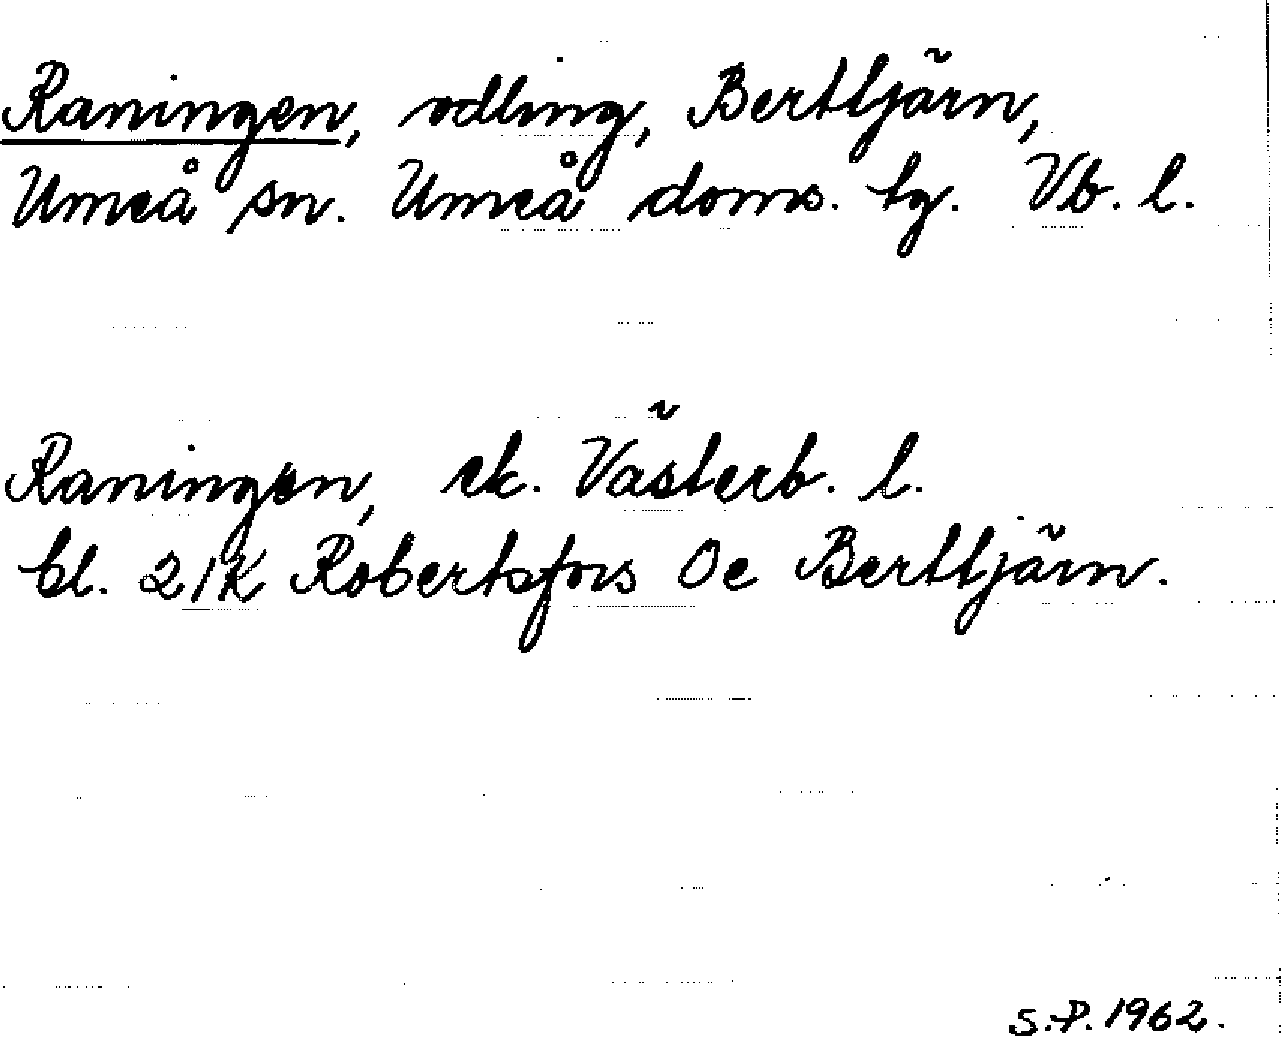 Raningen, odling, Berttjärn,
Umeå sn. Umeå doms. tg. Vb. l.
Raningen, ek. Västerb. l.
bl. 21K Robertsfors Oe Berttjärn.
S.P. 1962.